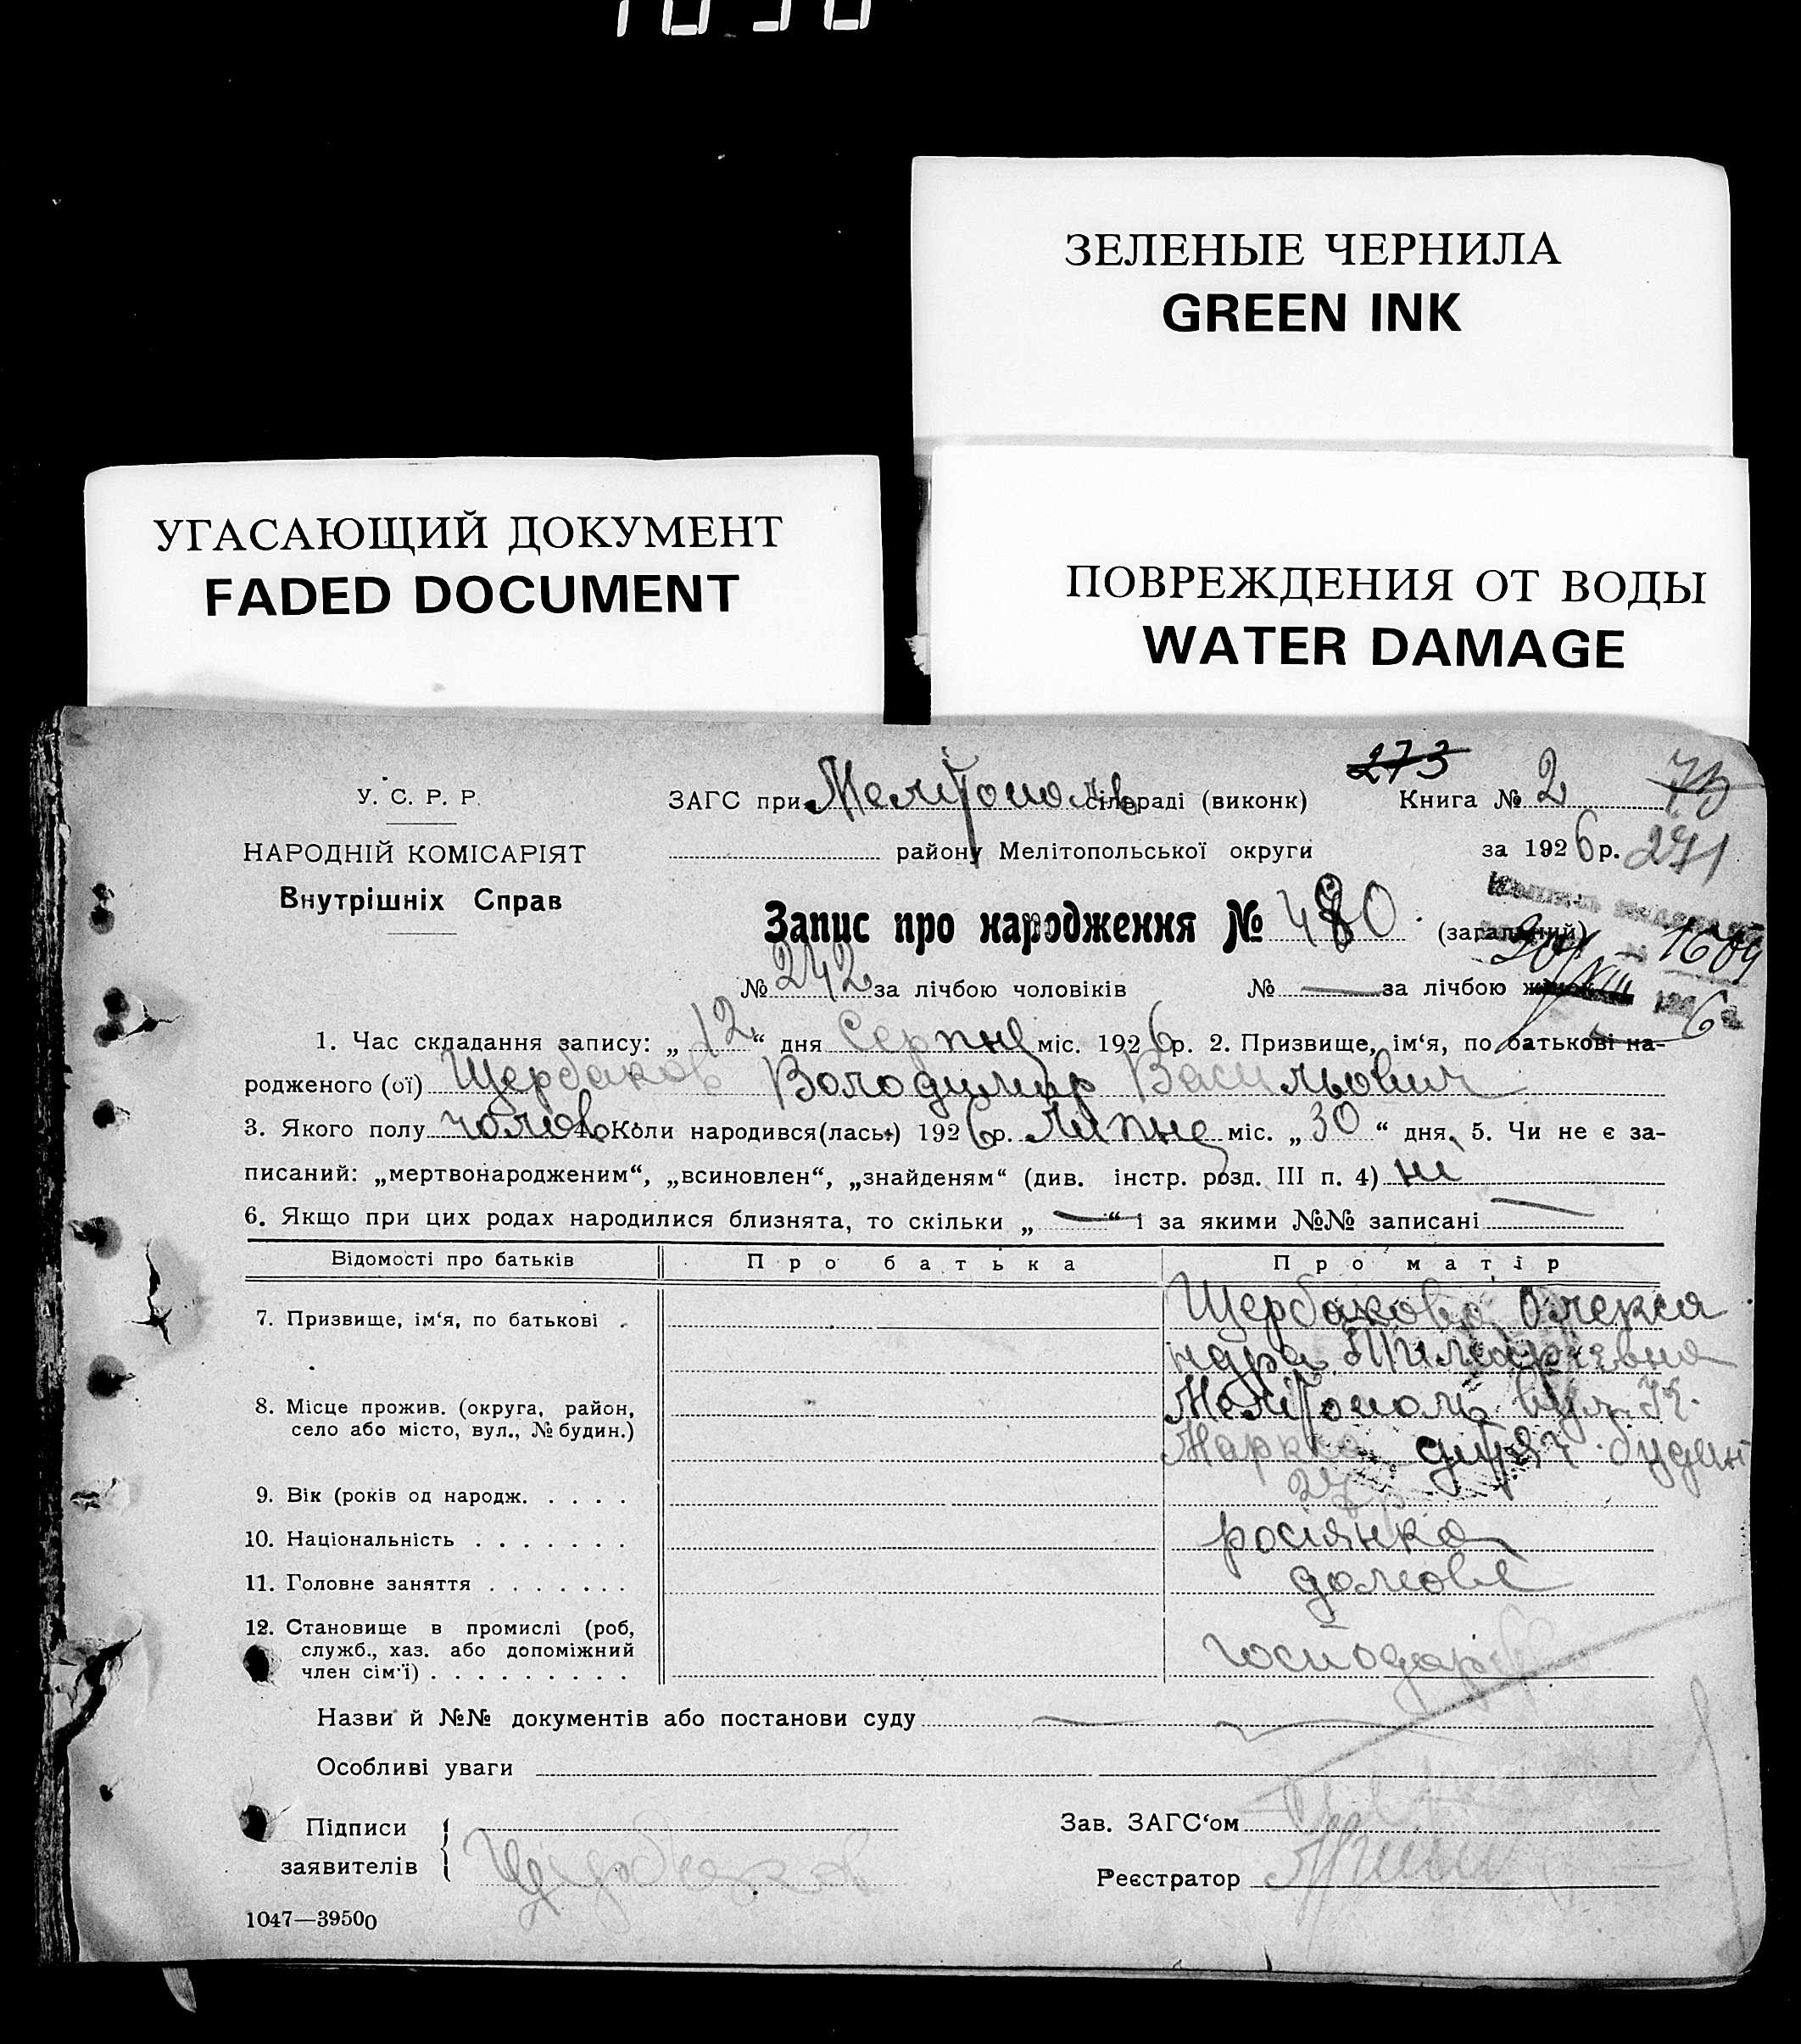 ЗЕЛЕНЫЕ ЧЕРНИЛА
GREEN INK
УГАСАЮЩИЙ ДОКУМЕНТ
FADED DOCUMENT
ПОВРЕЖДЕНИЯ ОТ ВОДЫ
WATER DAMAGE
273
У. С. Р. Р.
ЗАГС при Мелітополь сільраді (виконк) Книга № 2 73
НАРОДНІЙ КОМІСАРІЯТ
району Мелітопольської округи за 1926 р. 271
Внутрішніх Справ
Запис про народження № 480 (загальний)
1604
№ 242 за лічбою чоловіків № — за лічбою жінок
1. Час складання запису: „12“ дня Серпня міс. 1926 р. 2. Призвище, ім‘я, по батькові на-
родженого (ої) Щербаков Володимир Васильович
3. Якого полу чолов. 4. Коли народився(лась) 1926 р. Липня міс. „30“ дня, 5. Чи не є за-
писаний: „мертвонародженим“, „всиновлен“, „знайденям“ (див. інстр. розд. III п. 4) ні
6. Якщо при цих родах народилися близнята, то скільки „—“ і за якими №№ записані —
Відомості про батьків Про батька Про матір
7. Призвище, ім‘я, по батькові Щербакова Олекса
ндра
8. Місце прожив. (округа, район, Мелітополь вул. К.
село або місто, вул., № будин.) Маркса
9. Вік (років од народж. . . . . 27 р
10. Національність . . . . . . . росіянка
11. Головне заняття . . . . . . . домове
12. Становище в промислі (роб,
служб., хаз. або допоміжний
член сім‘ї) . . . . . . . . . господар
Назви й №№ документів або постанови суду —
Особливі уваги
Підписи
заявителів Щербаков
Зав. ЗАГС‘ом
Реєстратор
1047—39500